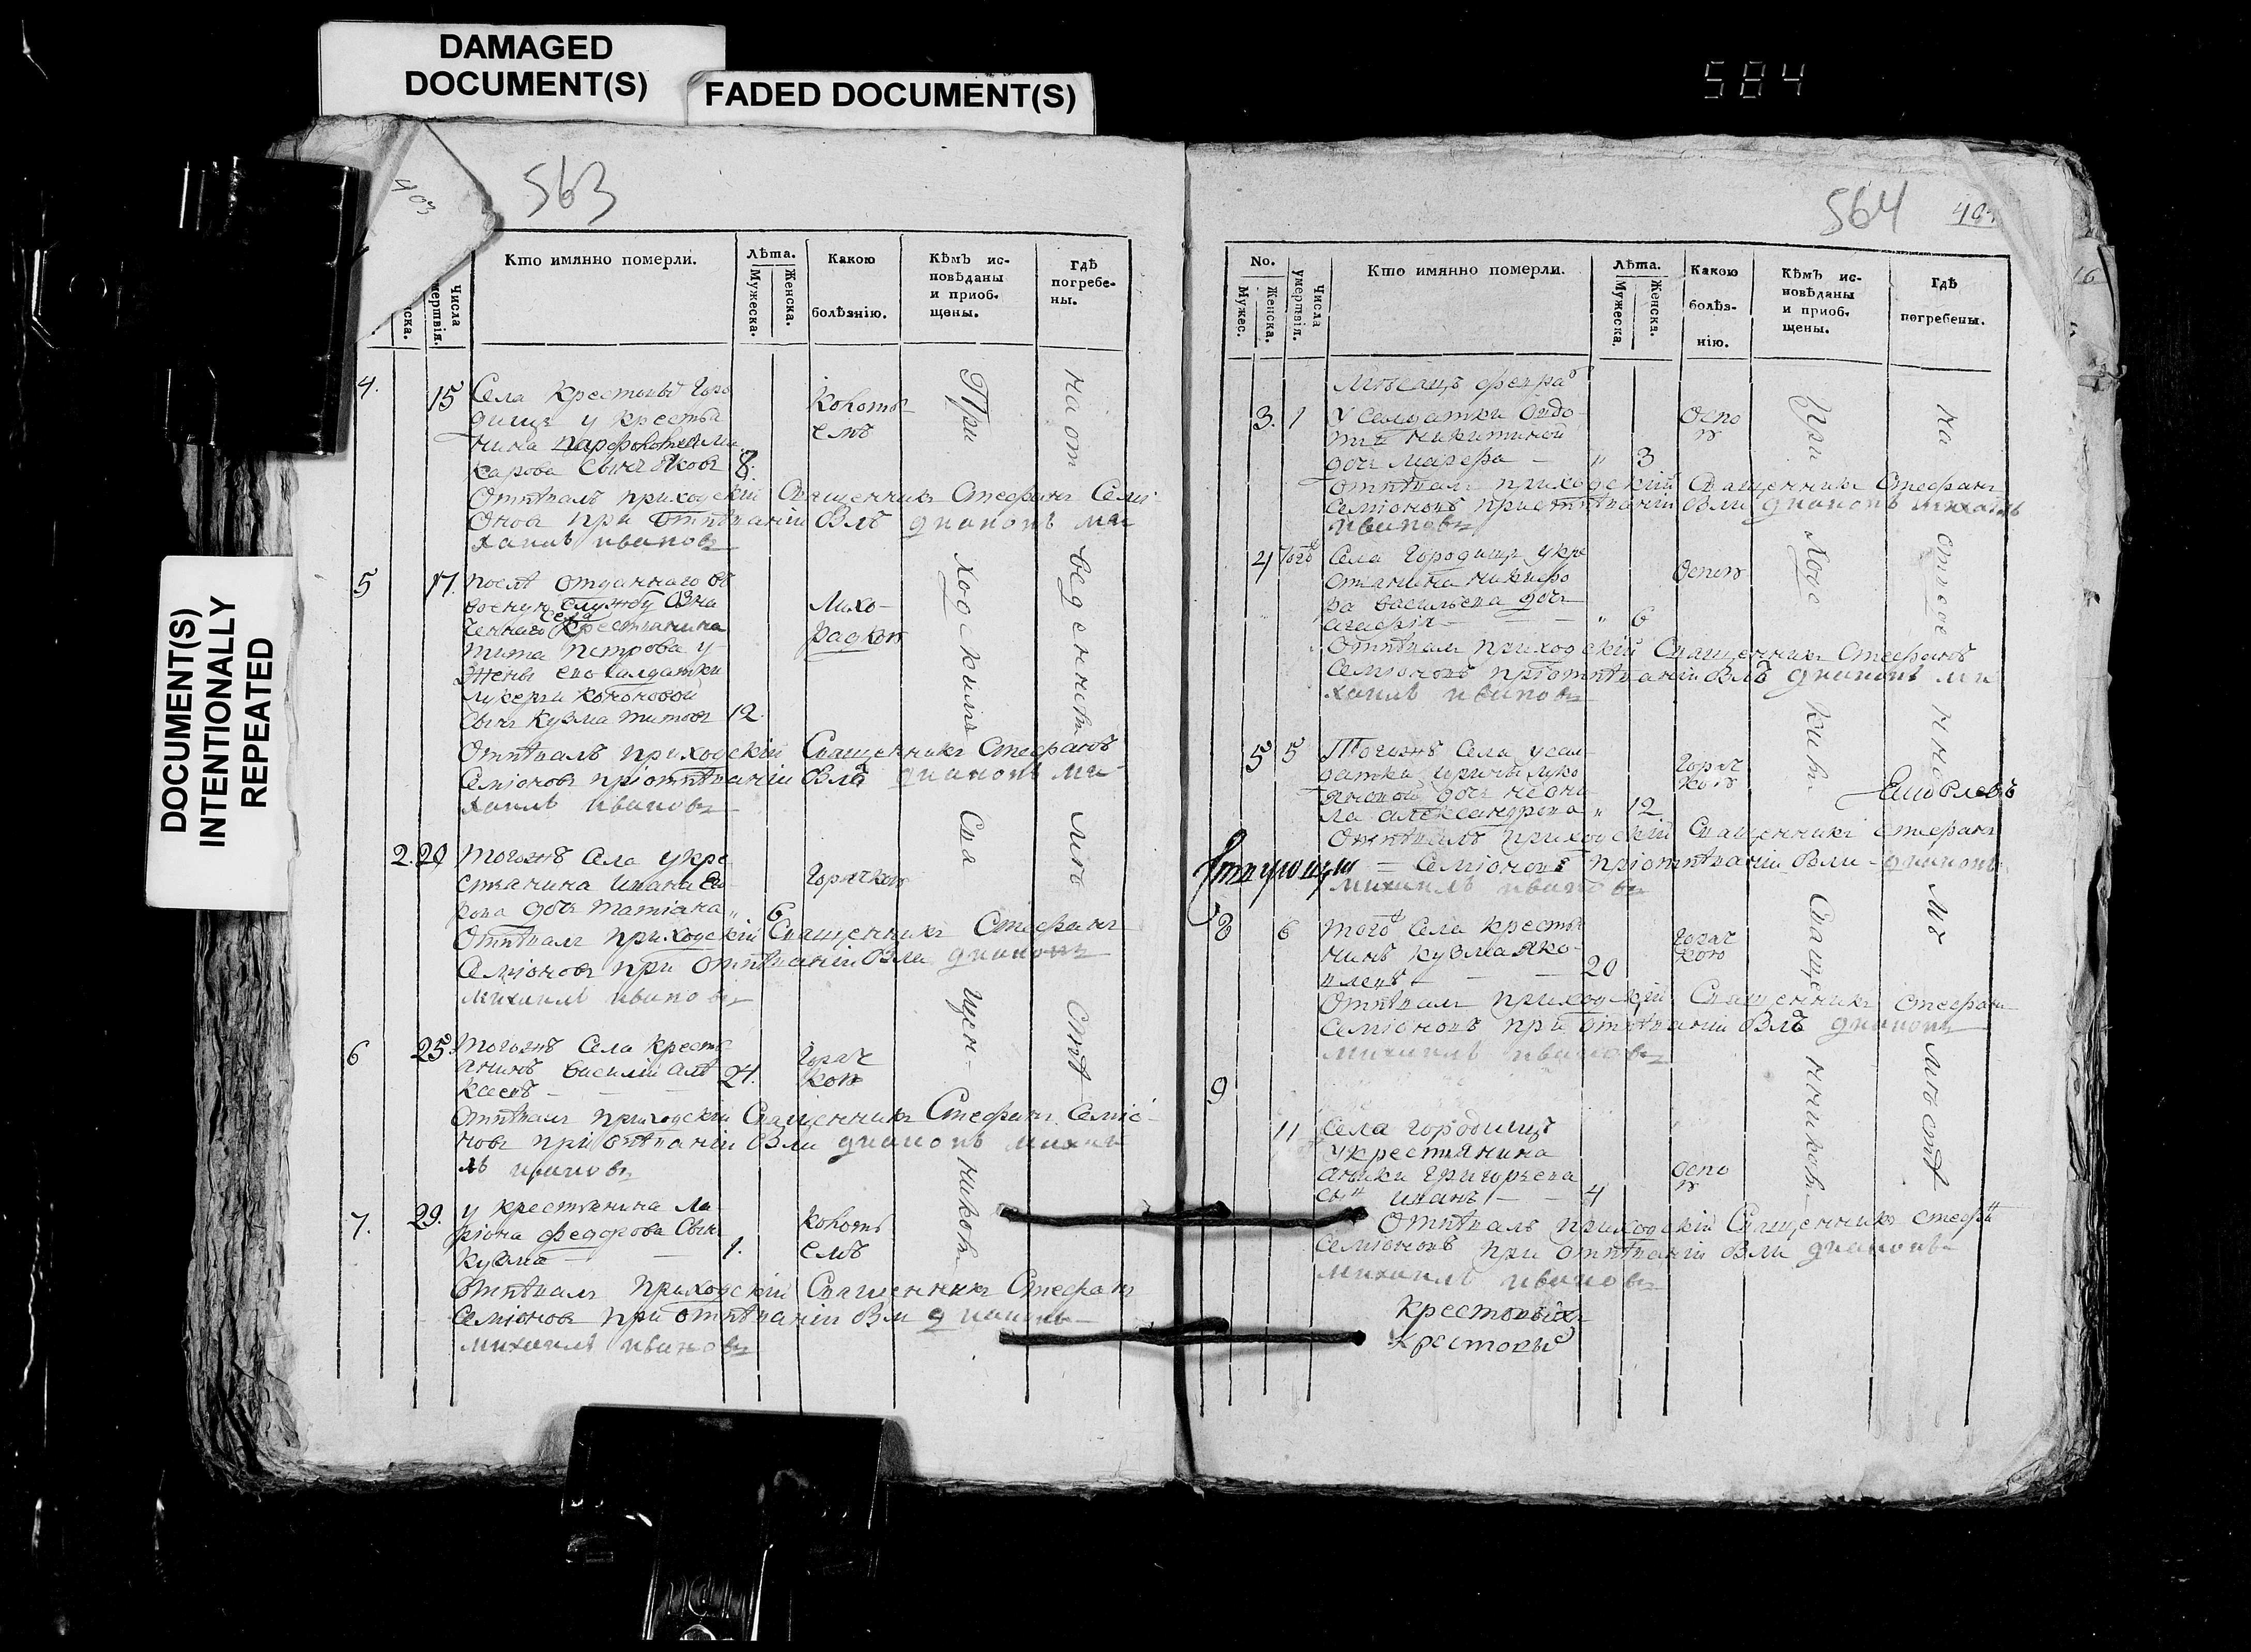 DAMAGED
DOCUMENT(S)
FADED DOCUMENT(S)
584
DOCUMENT(S)
INTENTIONALLY
REPEATED
403
563
Числа
Кто имянно померли.
Лѣта.
Мужеска.
Женска.
Какою
болѣзнію.
Кѣмъ ис-
повѣданы
и приоб-
щены.
Гдѣ
погребе-
ны.
4. 15 Села Крестовы Горо
дищъ у крестья
нина
карова сынъ Яковъ 8.
Отпѣвалъ приходскій Священникъ Стефанъ Семі
оновъ при отпѣваніи былъ дьяконъ ми
хаилъ ивановъ
5 17. послѣ отданнаго въ
военную службу Озна
ченнаго села Крестьянина
тита петрова у
Жены его салдатки
лукерьи
сынъ кузма титовъ 12.
Лихо-
радкою
Отпѣвалъ приходскій Священникъ Стефанъ
Семіоновъ при отпѣваніи былъ дьяконъ ми-
хаилъ ивановъ
2. 20 тогожъ Села у кре
стьянина ивана
дочь татіана „ 6
Горячкою
Отпѣвалъ приходскій Священникъ Стефанъ
Семіоновъ при отпѣваніи былъ дьяконъ
михаилъ ивановъ
6 25. тогожъ Села крестья
янинъ василій алѣ
ксеевъ 24.
Горяч
кою
Отпѣвалъ приходскій Священникъ Стефанъ Семіо
новъ при отпѣваніи былъ дьяконъ михаи
лъ ивановъ
7. 29. у крестьянина Ла
ріона федорова сынъ
Кузма 1.
Отпѣвалъ приходскій Священникъ Стефанъ
Семіоновъ при отпѣваніи былъ дьяконъ
михаилъ ивановъ
При ход скимъ Свя щен- никомъ
на от веденномъ
564
No.
Мужес.
Женска.
Числа
умертвія.
Кто имянно померли.
Лѣта.
Мужеска.
Женска.
Какою
болѣз-
нію.
Кѣмъ ис-
повѣданы
и приоб.
щены.
Гдѣ
погребены.
3. 1 У Салдатки
никитиной
дочь Марфа — „ 3
Оспо
ю
Отпѣвалъ приходскій Священникъ Стефанъ
Семіоновъ при отпѣваніи былъ дьяконъ михаилъ
ивановъ
4 Села Городищъ у кре
стянина никифо
ра васильева дочь
агафія „ 6
Оспою
Отпѣвалъ приходскій Священникъ Стефанъ
Семіоновъ при отпѣваніи былъ дьяконъ ми
хаилъ ивановъ
5 5 Тогожъ Села у сал
датки ирины
дочь
александрова „ 12.
Горяч
кою
Отпѣвалъ приходскій Священникъ Стефанъ
— Семіоновъ при отпѣваніи былъ дьяконъ
михаилъ ивановъ
8 6 того Села крестья
нинъ кузма Яко-
влевъ — 20
Горяч
кою
Отпѣвалъ приходскій Священникъ Стефанъ
Семіоновъ при отпѣваніи былъ дьяконъ
михаилъ ивановъ
9
11 Села Городищъ
у крестянина
аники григорьева
сынъ иванъ — 4
оспо
ю
Отпѣвалъ приходскій Священникъ Стефанъ
Семіоновъ при отпѣваніи былъ дьяконъ
михаилъ ивановъ
крестовыхъ
крестовы